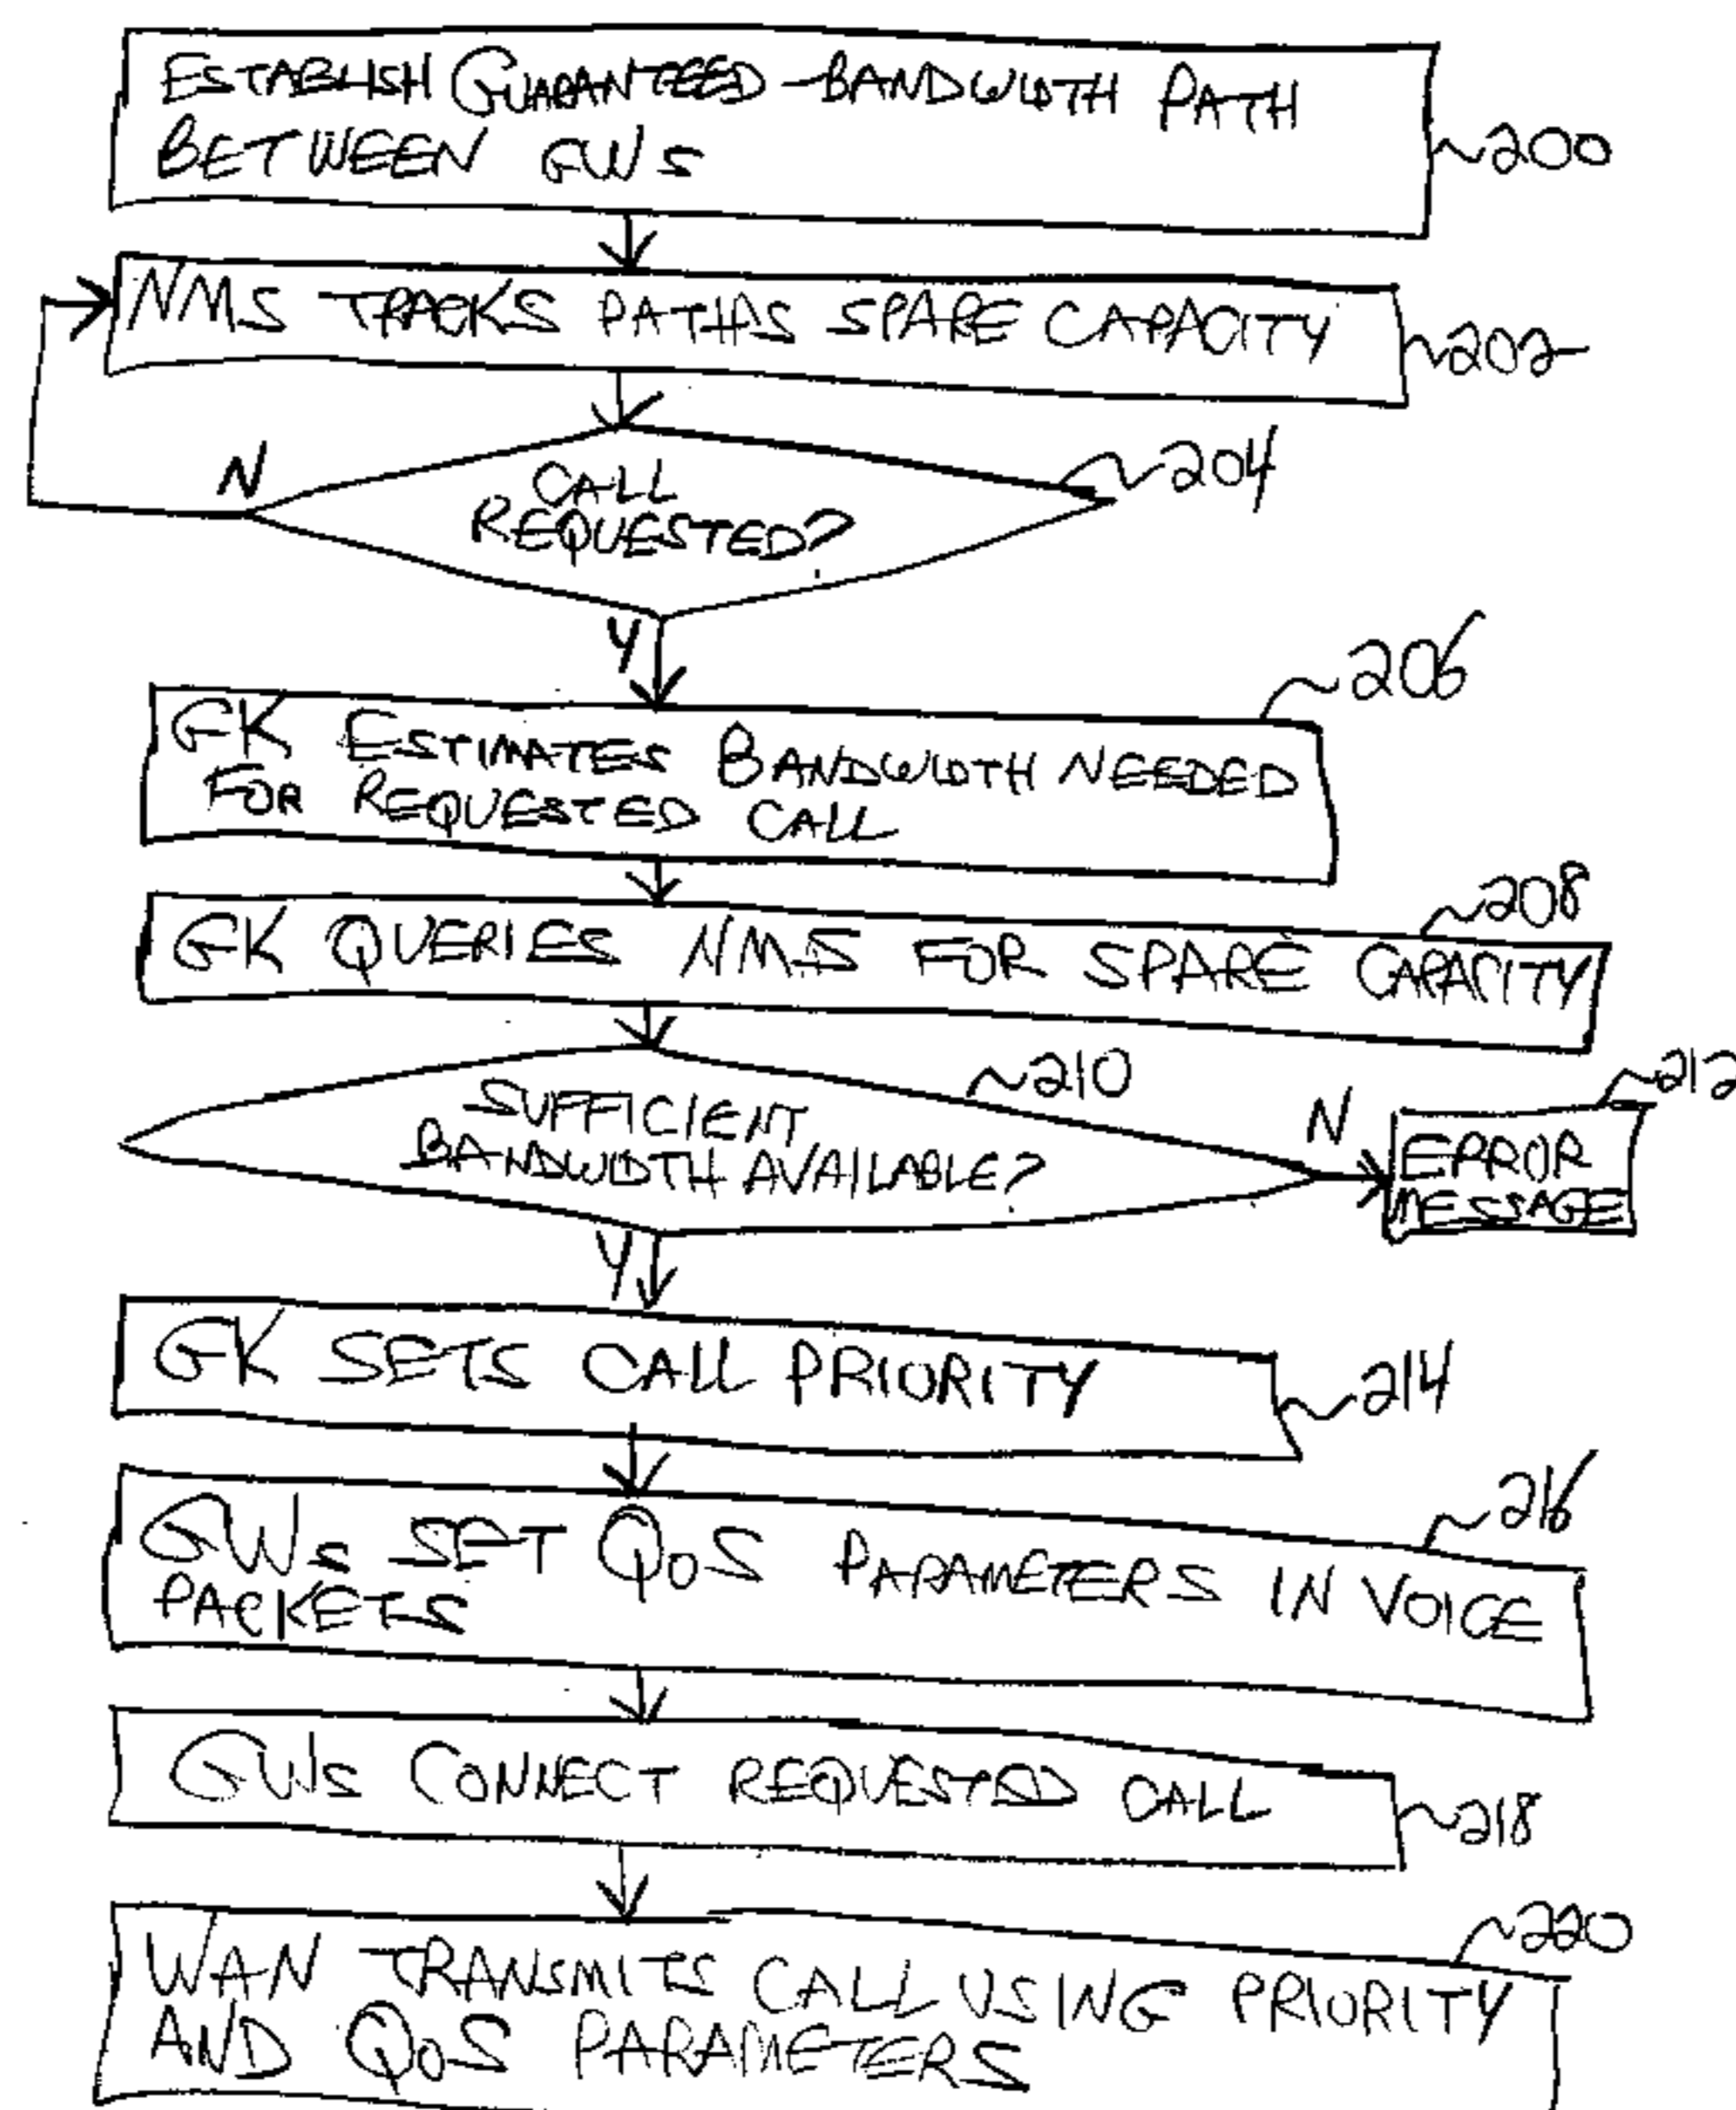 ESTABLISH GUARANTEED-BANDWIDTH PATH
BETWEEN GWS
~200
NMS TRACKS PATHS SPARE CAPACITY
~202
CALL
REQUESTED?
~204
N
Y
~206
GK ESTIMATES BANDWIDTH NEEDED
FOR REQUESTED CALL
~208
GK QUERIES NMS FOR SPARE CAPACITY
SUFFICIENT
BANDWIDTH AVAILABLE?
~210
N
~212
ERROR
MESSAGE
Y
GK SETS CALL PRIORITY
~214
~216
GWs SET QoS PARAMETERS IN VOICE
PACKETS
GWs CONNECT REQUESTED CALL
~218
~220
WAN TRANSMITS CALL USING PRIORITY
AND QoS PARAMETERS